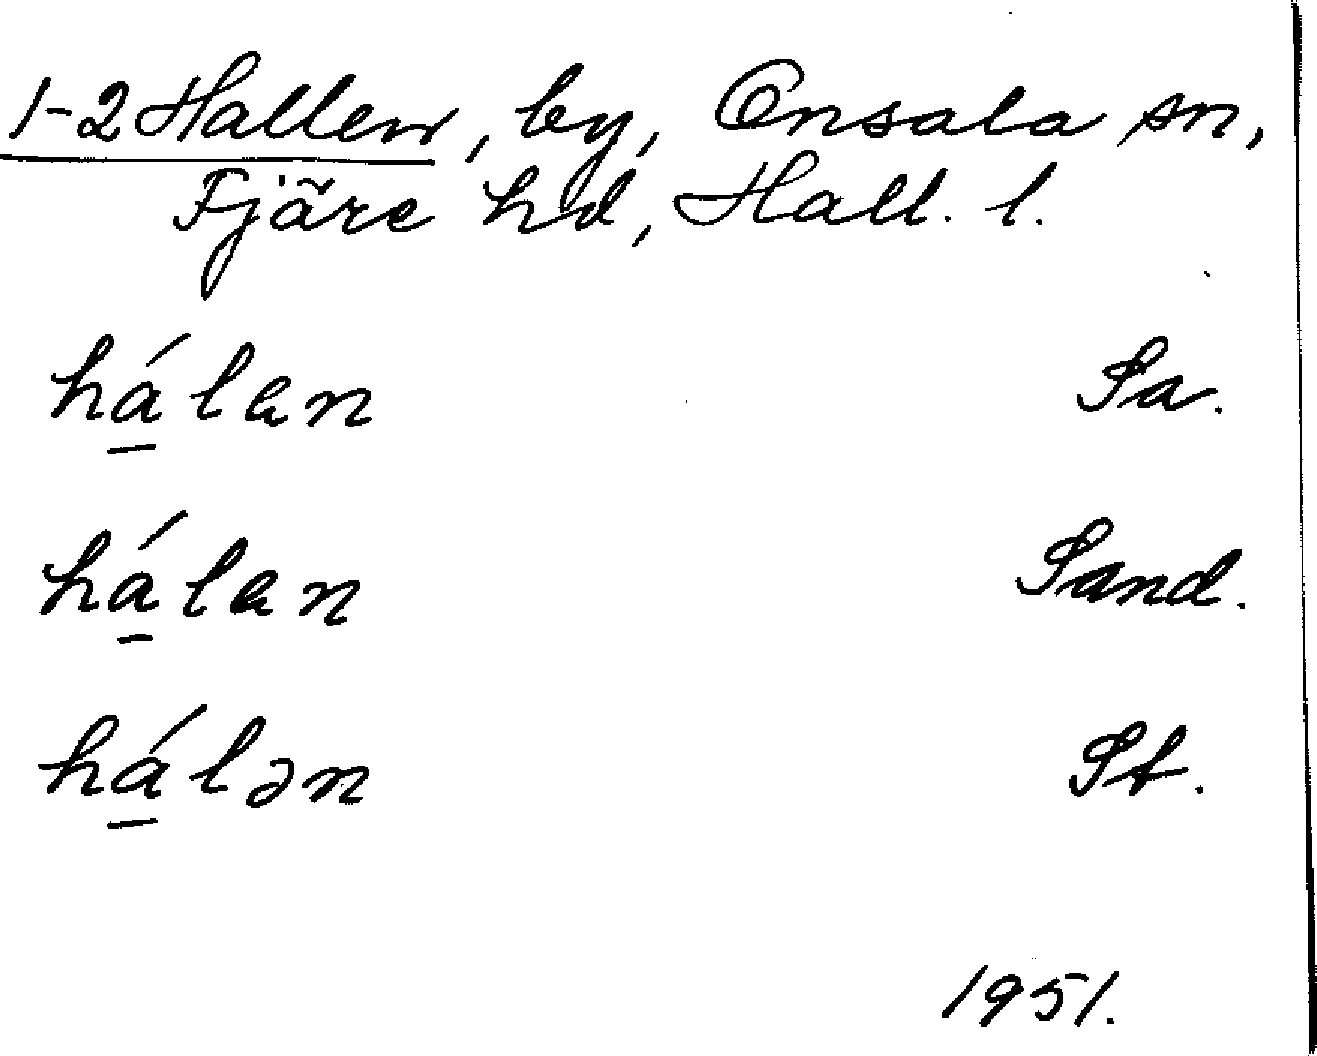 1-2 Hallen, by, Onsala sn,
Fjäre hd, Hall. l.
há̱lɐn Sa.
há̱lɐn Sand.
há̱lən St.
1951.